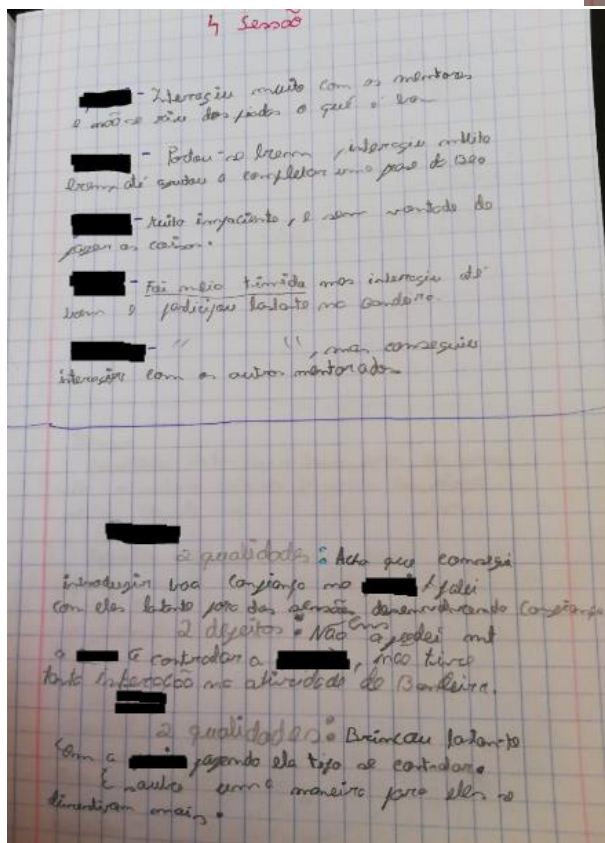 4 Sessão
- Interagiu muito com os mentores
e não se riu das piadas o que é bom
- Portou-se bem, interagiu muito
bem até ajudou a completar uma frase do
- Muito impaciente, e sem vontade de
fazer as coisas.
- Foi meio tímida mas interagiu até
bem e participou bastante na bandeira.
- " ", mas conseguiu
interagir com os outros mentorados
2 qualidades: Acho que consegui
introduzir boa confiança no e falei
com eles bastante fora das sessões desenvolvendo confiança
2 defeitos: Não ajudei mt
a a controlar a , não tive
tanta interação na atividade de Bandeira.
2 qualidades: Brincou bastante
com a fazendo ela tipo se controlar.
E soube uma maneira para eles se
divertirem mais.